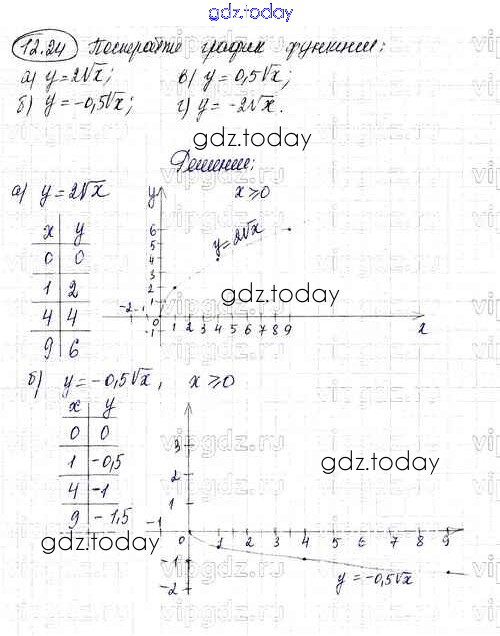 gdz.today
12.24 Постройте график функции:
а) y = 2√x; в) y = 0,5√x;
б) y = -0,5√x; г) y = -2√x.
gdz.today
Решение:
а) y = 2√x y x ≥ 0
x y
0 0
1 2
4 4
9 6
6
5
4
3
2
1
y = 2√x
gdz.today
-2 -1 0 1 2 3 4 5 6 7 8 9
-1
x
б) y = -0,5√x, x ≥ 0
x y
0 0
1 -0,5
4 -1
9 -1,5
3
2
1
gdz.today
-1 0 1 2 3 4 5 6 7 8 9
-1
-2
y = -0,5√x
gdz.today
vipgdz.ru